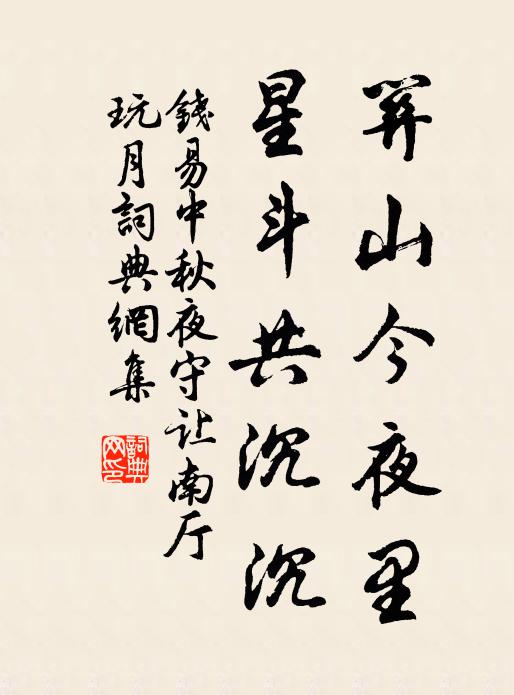 山今夜里
星斗共沉沉
錢易中秋夜守让南厅
玩月詞典網集
詞典
网印